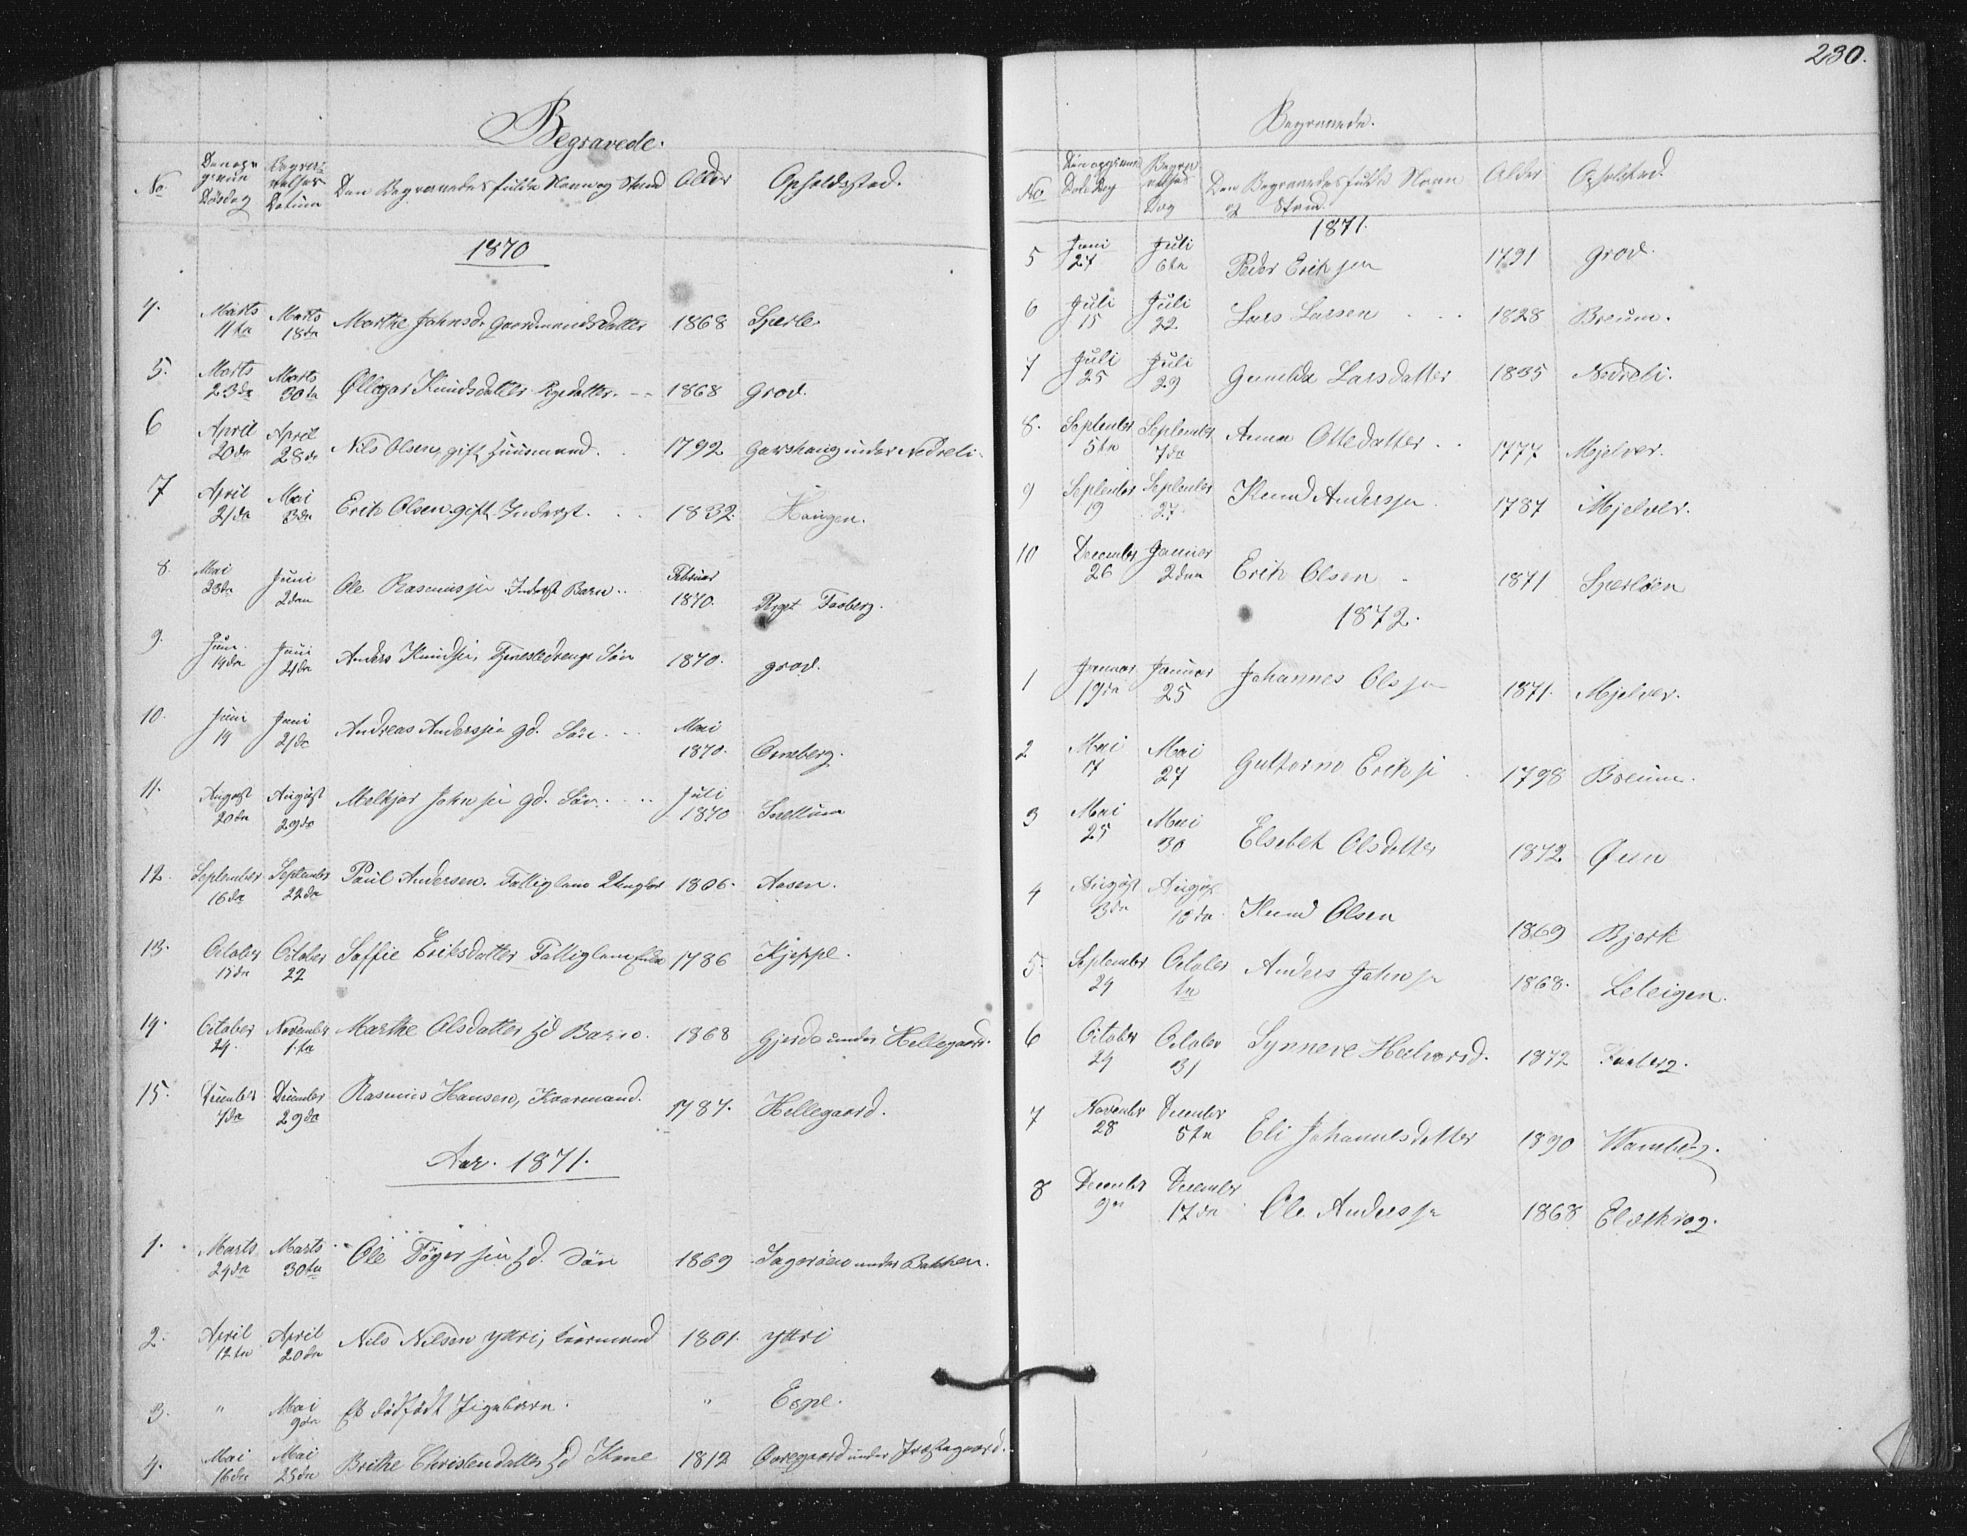 Begravede.
No. Den opgivne Dødsdag Begravelses Datum Den Begravedes fulde Navn og Stand Alder Opholdssted.
1870
4. Marts 11te Marts 18de Marthe Johnsd. Gaardmandsdatter 1868 Sperle
5. Marts 23de Marts 30te Øllegar Knudsdatter 1868 Grov.
6 April 20de April 28de Nils Olsen, gift Huusmand. 1792 under Nedreli.
7 April 21de Mai 3de Erik Olsen gift Inderst. 1832. Haugen.
8. Mai 23de Juni 2den Ole Rasmussen Inderst Barn Februar 1870. Faaberg.
9. Juni 14de Juni 21de Anders Knudsen, Tjenestedrengs Søn 1870. Grov.
10. Juni 14 Juni 21de Andreas Anderssen gd. Søn Mai 1870. Ormberg.
11. August 20de August 29de Melkjor Johnsen gd. Søn Juli 1870
12. September 16de September 22de Paul Andersen. Fattiglem 1806. Aasen.
13. October 15de October 22 Soffie Eriksdatter Fattiglem Enke 1786 Kjeppe.
14. October 24. November 1te Marthe Olsdatter Hd Barn. 1868 Gjerde under Hellegaard.
15. December 7de December 29de Rasmus Hansen, Kaarmand. 1787. Hellegaard.
Aar. 1871.
1. Marts 24de Marts 30te Ole Tøgersen Hd. Søn 1869 Sagerøen under Bakken.
2. April 12te April 20de Nils Nilsen Yttri, kaarmand 1801. Yttri
3. " Mai 9de Et dødfødt Pigebarn. " Espe.
4. Mai 16de Mai 25de Brithe Christensdatter Hd Kone 1812 Øvregaard under Præstegaard.
230.
Begravede.
No Den opgivne Døds Dag Begravelses Dag Den Begravedes fulde Navn og Stand. Alder Opholdsted.
1871.
5 Juni 27 Juli 6te Peder Eriksen 1791 Grov.
6 Juli 15 Juli 22. Lars Larsen 1828 Breum.
7 Juli 25 Juli 29 Gunilda Larsdatter 1835 Nedreli.
8. September 5te September 7de Anna Ottedatter 1777 Mjelver.
9 September 19 September 27 Knud Anderssen 1787 Mjelver.
10 December 26 Januar 2den Erik Olsen 1871
1872.
1 Januar 19de Januar 25 Johannes Olsen 1871. Mjelver.
2 Mai 17 Mai 27 Guttorm Eriksen 1798 Breum.
3 Mai 25 Mai 30 Elsebet Olsdatter 1872
4 August 13de August 18de Knud Olsen 1869 Bjørk
5. September 24 October Anders Johnsen 1868.
6 October 24 October 31 Synneve Halvorsd. 1872 Faaberg.
7 November 28 December 5te Eli Johannesdatter 1890 Wamberg.
8 December December 17de Ole Anderssen 1868